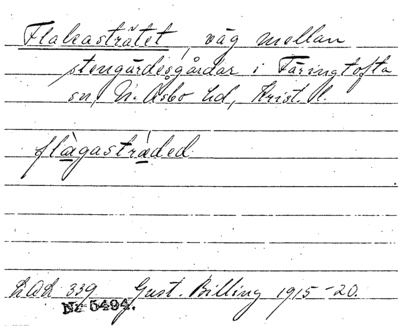 Flakasträtet, väg mellan
stengärdesgårdar i Färingtofta
sn, N. Åsbo hd, Krist. l.
flagasträded
LAL 339 Gust. Billing 1915-20.
Nr 5494.